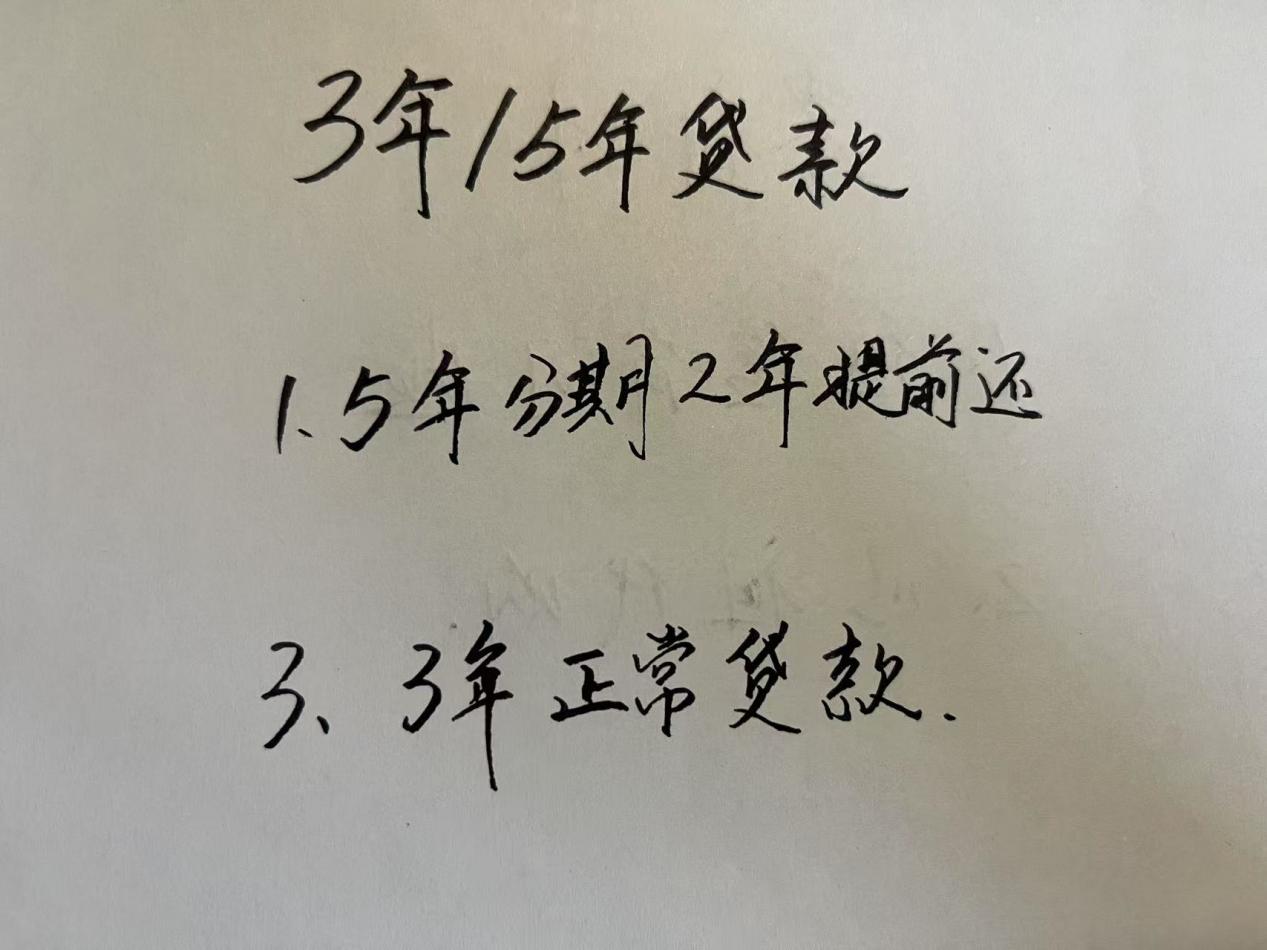 3年/5年贷款
1、5年分期2年提前还
3、3年正常贷款.